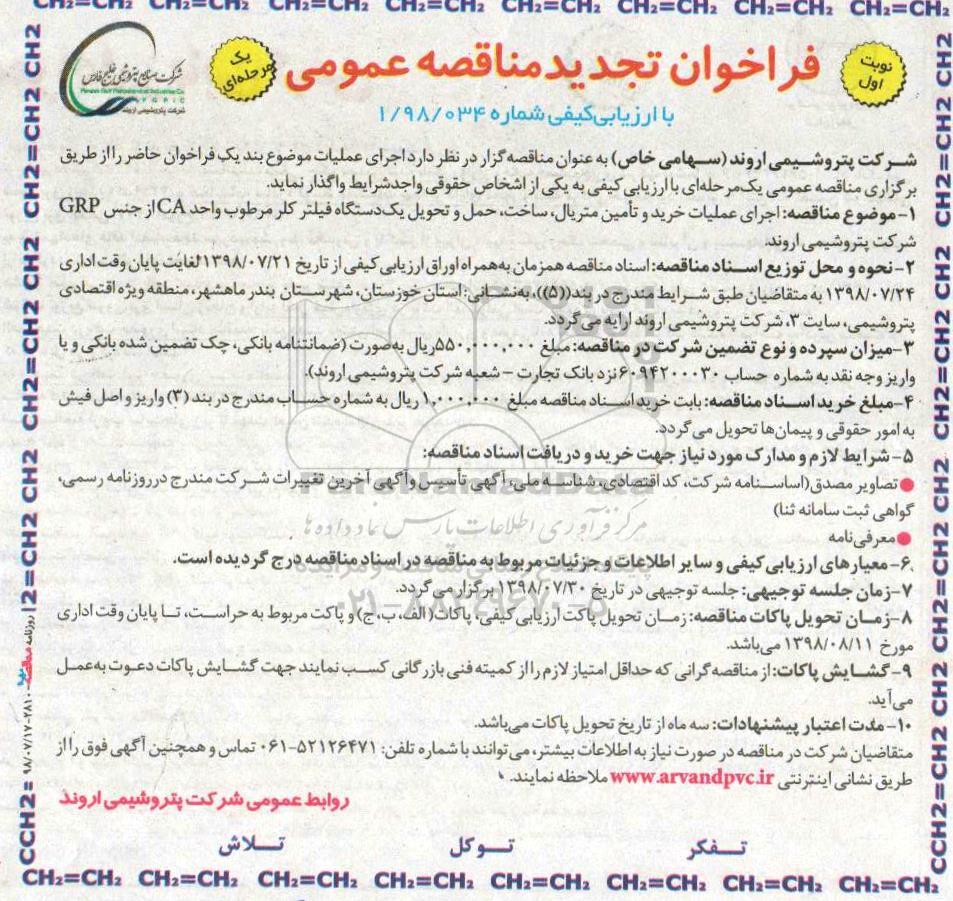 CH₂=CH₂ CH₂=CH₂ CH₂=CH₂ CH₂=CH₂ CH₂=CH₂ CH₂=CH₂ CH₂=CH₂ CH₂=CH₂
نوبت اول
فراخوان تجدید مناقصه عمومی
یک مرحله‌ای
شرکت صنایع پتروشیمی خلیج فارس
Persian Gulf Petrochemical Industries Co
P G P I C
شرکت پتروشیمی اروند
با ارزیابی کیفی شماره ۱/۹۸/۰۳۴
شرکت پتروشیمی اروند (سهامی خاص) به عنوان مناقصه‌گزار در نظر دارد اجرای عملیات موضوع بند یک فراخوان حاضر را از طریق
برگزاری مناقصه عمومی یک‌مرحله‌ای با ارزیابی کیفی به یکی از اشخاص حقوقی واجدشرایط واگذار نماید.
۱-موضوع مناقصه: اجرای عملیات خرید و تأمین متریال، ساخت، حمل و تحویل یک‌دستگاه فیلتر کلر مرطوب واحد CA از جنس GRP
شرکت پتروشیمی اروند.
۲-نحوه و محل توزیع اسناد مناقصه: اسناد مناقصه همزمان به‌همراه اوراق ارزیابی کیفی از تاریخ ۱۳۹۸/۰۷/۲۱ لغایت پایان وقت اداری
۱۳۹۸/۰۷/۲۴ به متقاضیان طبق شرایط مندرج در بند((۵))، به‌نشانی: استان خوزستان، شهرستان بندر ماهشهر، منطقه ویژه اقتصادی
پتروشیمی، سایت ۳، شرکت پتروشیمی اروند ارایه می گردد.
۳-میزان سپرده و نوع تضمین شرکت در مناقصه: مبلغ ۵۵۰,۰۰۰,۰۰۰ریال به‌صورت (ضمانتنامه بانکی، چک تضمین شده بانکی و یا
واریز وجه نقد به شماره حساب ۶۰۹۴۲۰۰۰۳۰ نزد بانک تجارت - شعبه شرکت پتروشیمی اروند).
۴-مبلغ خرید اسناد مناقصه: بابت خرید اسناد مناقصه مبلغ ۱,۰۰۰,۰۰۰ ریال به شماره حساب مندرج در بند (۳) واریز و اصل فیش
به امور حقوقی و پیمان‌ها تحویل می گردد.
۵-شرایط لازم و مدارک مورد نیاز جهت خرید و دریافت اسناد مناقصه:
● تصاویر مصدق(اساسنامه شرکت، کد اقتصادی، شناسه ملی، آگهی تأسیس و آگهی آخرین تغییرات شرکت مندرج در روزنامه رسمی،
گواهی ثبت سامانه ثنا)
● معرفی‌نامه
۶-معیارهای ارزیابی کیفی و سایر اطلاعات و جزئیات مربوط به مناقصه در اسناد مناقصه درج گردیده است.
۷-زمان جلسه توجیهی: جلسه توجیهی در تاریخ ۱۳۹۸/۰۷/۳۰ برگزار می گردد.
۸-زمان تحویل پاکات مناقصه: زمان تحویل پاکت ارزیابی کیفی، پاکات( الف، ب، ج) و پاکت مربوط به حراست، تا پایان وقت اداری
مورخ ۱۳۹۸/۰۸/۱۱ می‌باشد.
۹-گشایش پاکات: از مناقصه‌گرانی که حداقل امتیاز لازم را از کمیته فنی بازرگانی کسب نمایند جهت گشایش پاکات دعوت به‌عمل
می‌آید.
۱۰-مدت اعتبار پیشنهادات: سه ماه از تاریخ تحویل پاکات می‌باشد.
متقاضیان شرکت در مناقصه در صورت نیاز به اطلاعات بیشتر، می‌توانند با شماره تلفن: ۵۲۱۲۶۴۷۱-۰۶۱ تماس و همچنین آگهی فوق را از
طریق نشانی اینترنتی www.arvandpvc.ir ملاحظه نمایند.
روابط عمومی شرکت پتروشیمی اروند
تفکر توکل تلاش
CH₂=CH₂ CH₂=CH₂ CH₂=CH₂ CH₂=CH₂ CH₂=CH₂ CH₂=CH₂ CH₂=CH₂ CH₂=CH₂
ParsNamadData
مرکز فرآوری اطلاعات پارس نماد داده ها
۰۲۱-۸۸۳۴۹۶۷۰-۵
روزنامه مناقصه ۲۸۱۰-۹۸/۰۷/۱۷